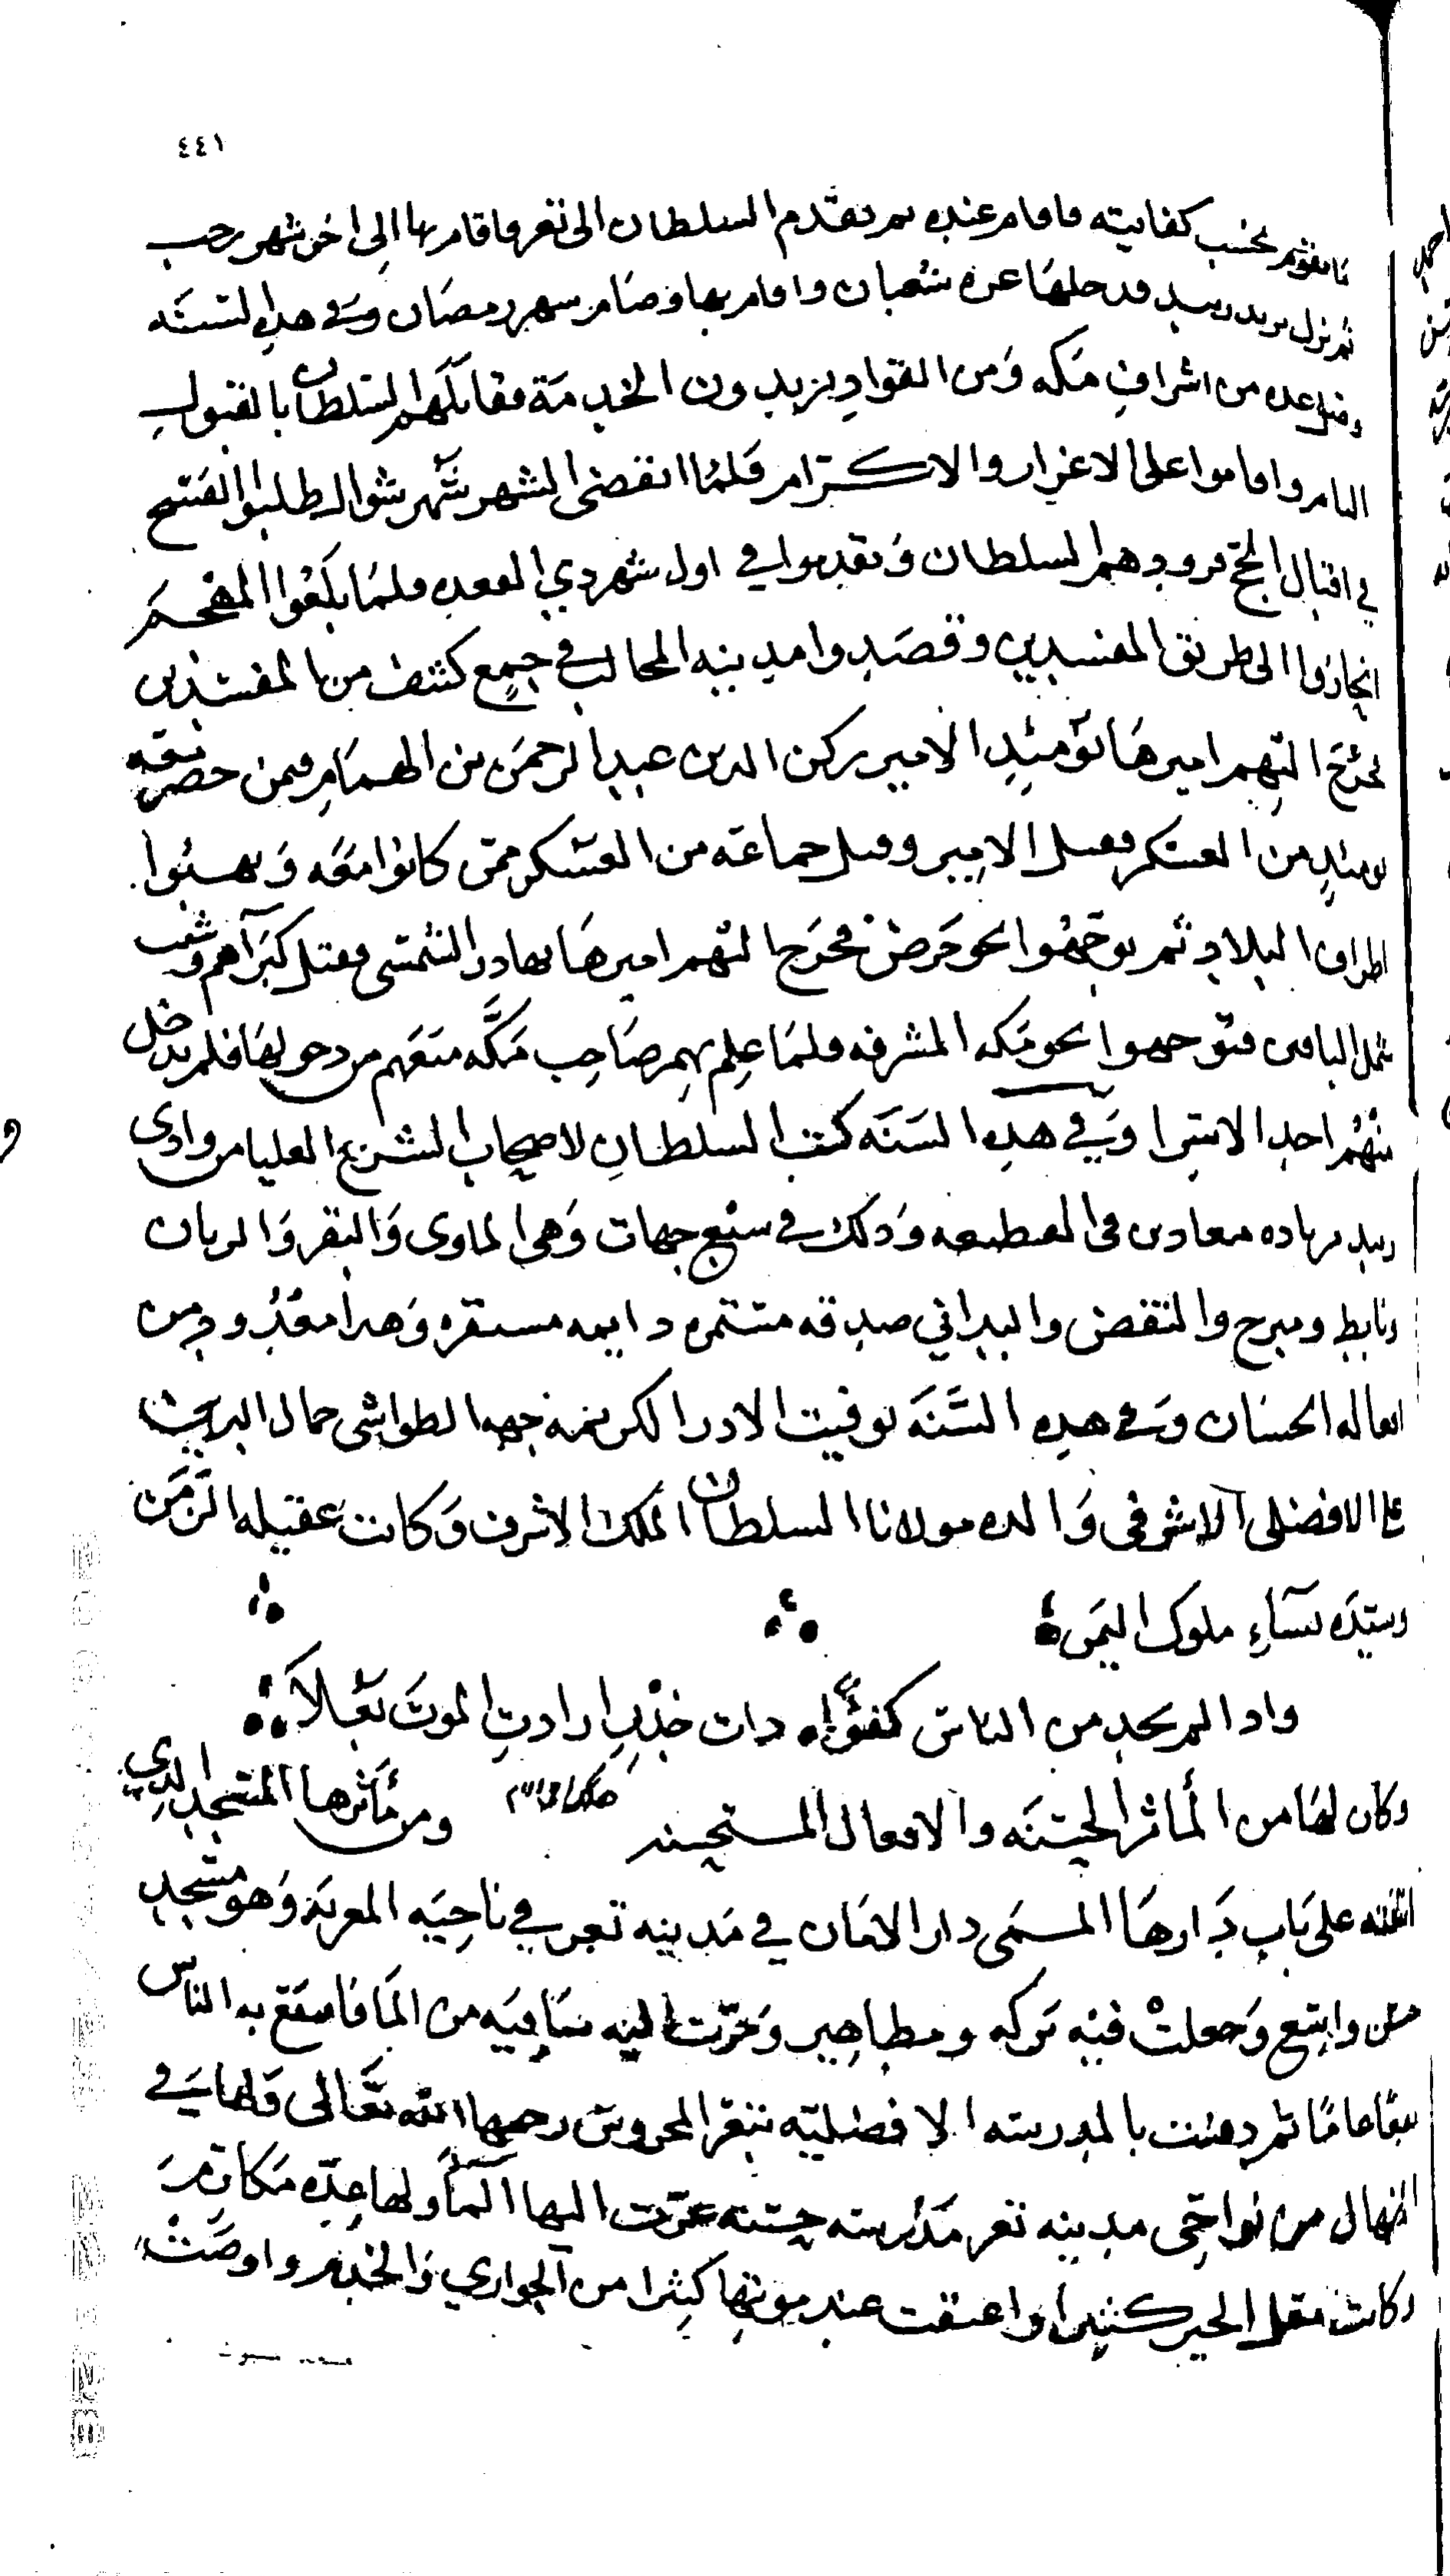 ٤٤١
ما يقوم بحسب كفايته فاقام عنده ثم تقدم السلطان الى تعز فاقام بها الى اخر شهر رجب
ثم نزل يريد زبيد فدخلها غره شعبان واقام بها وصام شهر رمضان وفي هذه السنه
وصل عده من اشراف مكه ومن القواد يريدون الخدمة فقابلهم السلطان بالقبول
التام واقاموا على الاعزاز والاكرام فلما انقضى الشهر شهر شوال طلبوا الفسح
في اقبال الحج فزودهم السلطان وتقدموا في اول شهر ذي القعده فلما بلغوا المفحم
انحازوا الى طريق المفسدين وقصدوا مدينه المحالب في جمع كثيف من المفسدين
فخرج اليهم اميرها يومئذ الامير ركن الدين عبد الرحمن بن الهمام فيمن حضر معه
يومئذ من العسكر فقتل الامير وقتل جماعه من العسكر ممن كانوا معه ونهبوا
اطراف البلاد ثم توجهوا نحو حرض فخرج اليهم اميرها بهادر الشمسي فقتل كبراهم وشتت
شمل الباقين فتوجهوا نحو مكه المشرفه فلما علم بهم صاحب مكه منعهم من دخولها فلم يدخل
منهم احد الا سرا وفي هذه السنه كتب السلطان لاصحاب الشريج العليا من وادي
زبيد معادين في وذلك في سبع جهات وهي الماوى والبقر والريان
ونابط ومبرح والنقض والبداني صدقه مستمره دايمه مستقره وهذا معدود من
افعاله الحسان وفي هذه السنه توفيت الادر الكريمه جهه الطواشي جمال الدين
الافضلي الاشرفي والده مولانا السلطان الملك الاشرف وكانت عقيله الزمن
وسيده نساء ملوك اليمن
واذا لم تجد من الناس كفؤا ذات خدر ارادت الموت بعلا
وكان لها من المآثر الحسنه والافعال المستحسنه ومن مآثرها المسجد الذي
انشاته على باب دارها المسمى دار الامان في مدينه تعز في ناحيه المعربه وهو مسجد
حسن واسع وجعلت فيه بركه ومطاهير وجرت اليه ساقيه من الما فانتفع به الناس
نفعا عاما ثم دفنت بالمدرسه الافضليه بتعز المحروس رحمها الله تعالى ولها في
من نواحي مدينه تعز مدرسه حسنه جرت اليها الما ولها عده مكارم
وكانت تفعل الخير كثيرا واعتقت عند موتها كثيرا من الجواري والخدم واوصت